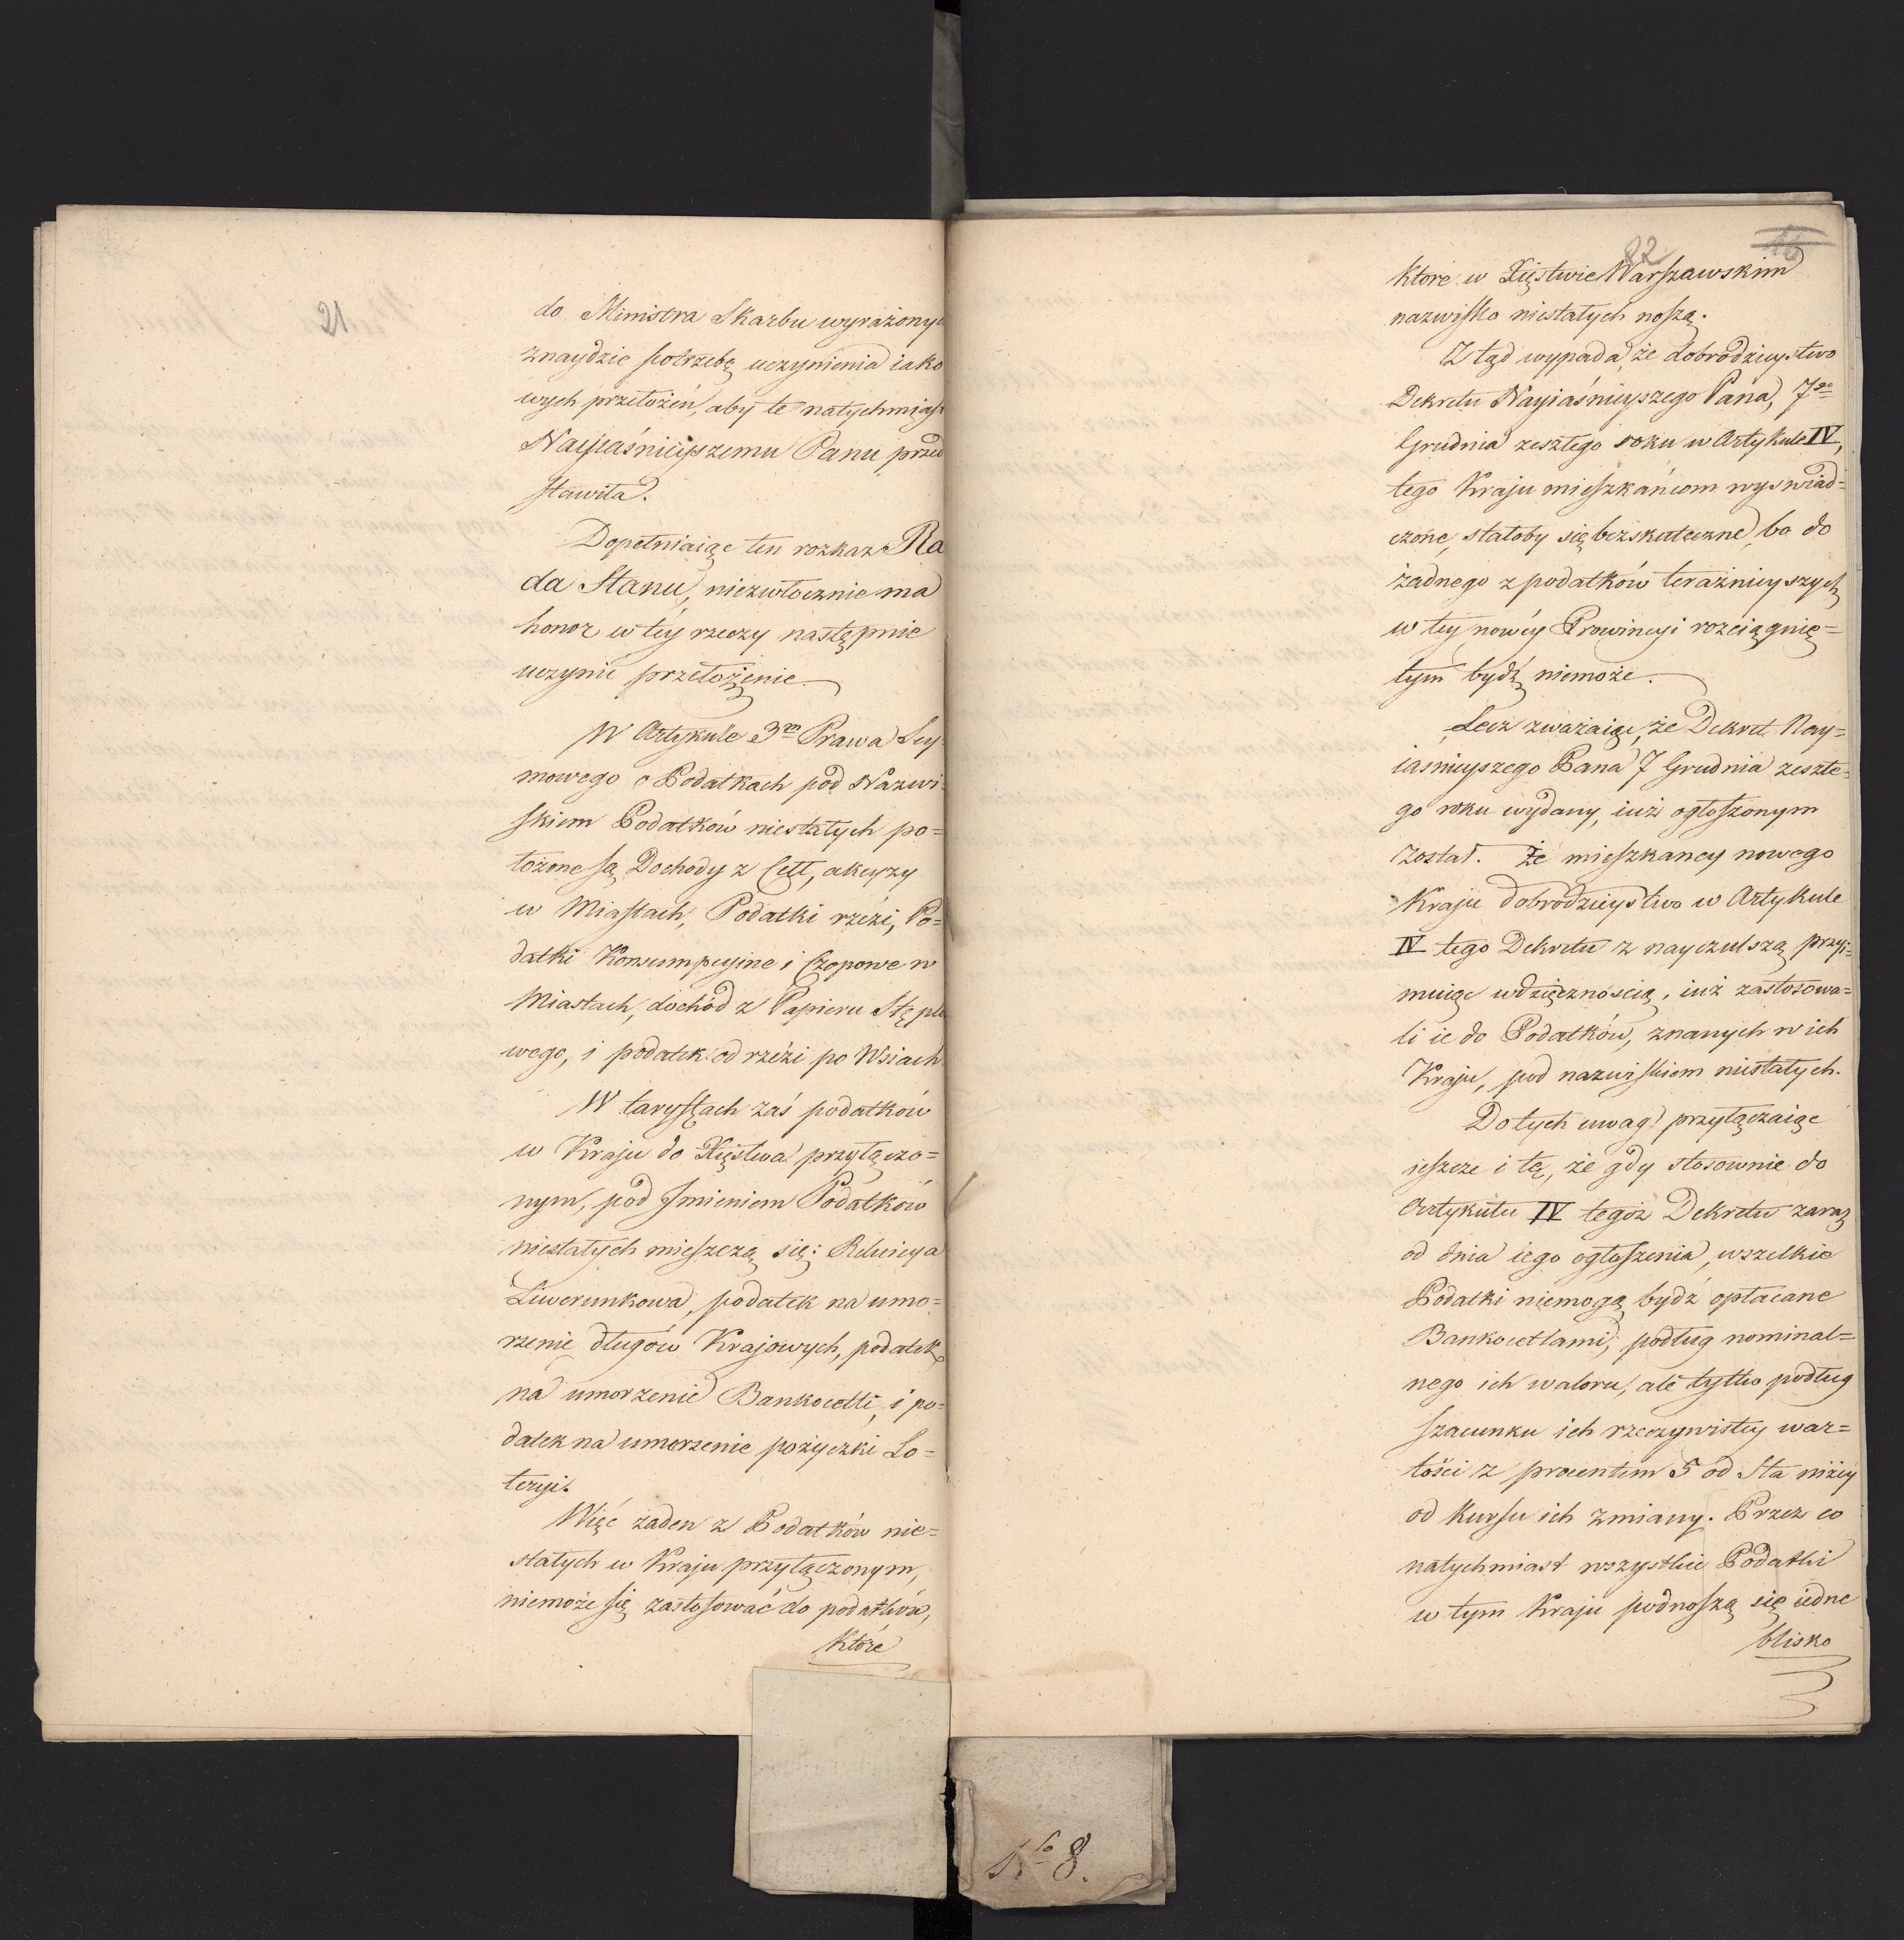 21
do Ministra Skarbu wyrażonyc
znaydzie potrzebę uczynienia iako
wych przełożeń, aby te natychmiast
Nayiaśnieyszemu Panu przed
stawiła.
Dopełniaiąc ten rozkaz Ra
da Stanu, niezwłocznie ma
honor w tey rzeczy następnie
uczynić przełożenie.
W Artykule 3m Prawa Sey=
mowego o Podatkach pod Nazwi=
skiem Podatków niestałych po=
łożone są Dochody z Cełł, akcyzy
w Miastach, Podatki rzézi, Po=
datki Konsumpcyine i Czopowe w
Miastach, dochód z Papieru Stęplo
wego, i podatek od rzézi po Wsiach.
W taryffach zaś podatków
w Kraju do Xięstwa przyłączo=
nym, pod Imieniem Podatków
niestałych mieszczą się: Reluicya
Liwerunkowa, podatek na umo=
rzenie długów Krajowych, podatek
na umorzenie Bankocetli, i po=
datek na umorzenie pożyczki Lo=
teryi.
Więc żaden z Podatków nie=
stałych w Kraju przyłączonym,
niemoże się zastosować do podatków,
Które
82
16
które w Xięstwie Warszawskim
nazwisko niestałych noszą.
Z tąd wypada, że dobrodzieystwo
Dekretu Nayiaśnieyszego Pana, 7go
Grudnia zeszłego roku w Artykule IV,
tego Kraju mieszkańcom wyświad=
czone, stałoby się bezskuteczne, bo do
żadnego z podatków teraźnieyszych
w tey nowéy Prowincyi rozciągnię=
tym bydź niemoże.
Lecz zważaiąc, że Dekret Nay=
iaśnieyszego Pana 7 Grudnia zeszłe=
go roku wydany, iuż ogłoszonym
został. Że mieszkancy nowego
Kraju dobrodzieystwo w Artykule
IV tego Dekretu z nayczulszą przyi=
muiąc wdzięcznością, iuż zastosowa=
li ie do Podatków, znanych w ich
Kraju, pod nazwiskiem niestałych.
Do tych uwag przyłączaiąc
ieszcze i tę, że gdy stosownie do
Artykułu IV tegoż Dekretu zaraz
od dnia iego ogłoszenia, wszelkie
Podatki niemogą bydź opłacane
Bankocetlami, podług nominal=
nego ich waloru, ale tylko podług
szacunku ich rzeczywistey war=
tości z procentem 5 od Sta niżey
od Kursu ich zmiany. Przez co
natychmiast wszystkie Podatki
w tym Kraju podnoszą się iedne
blisko
No 8.